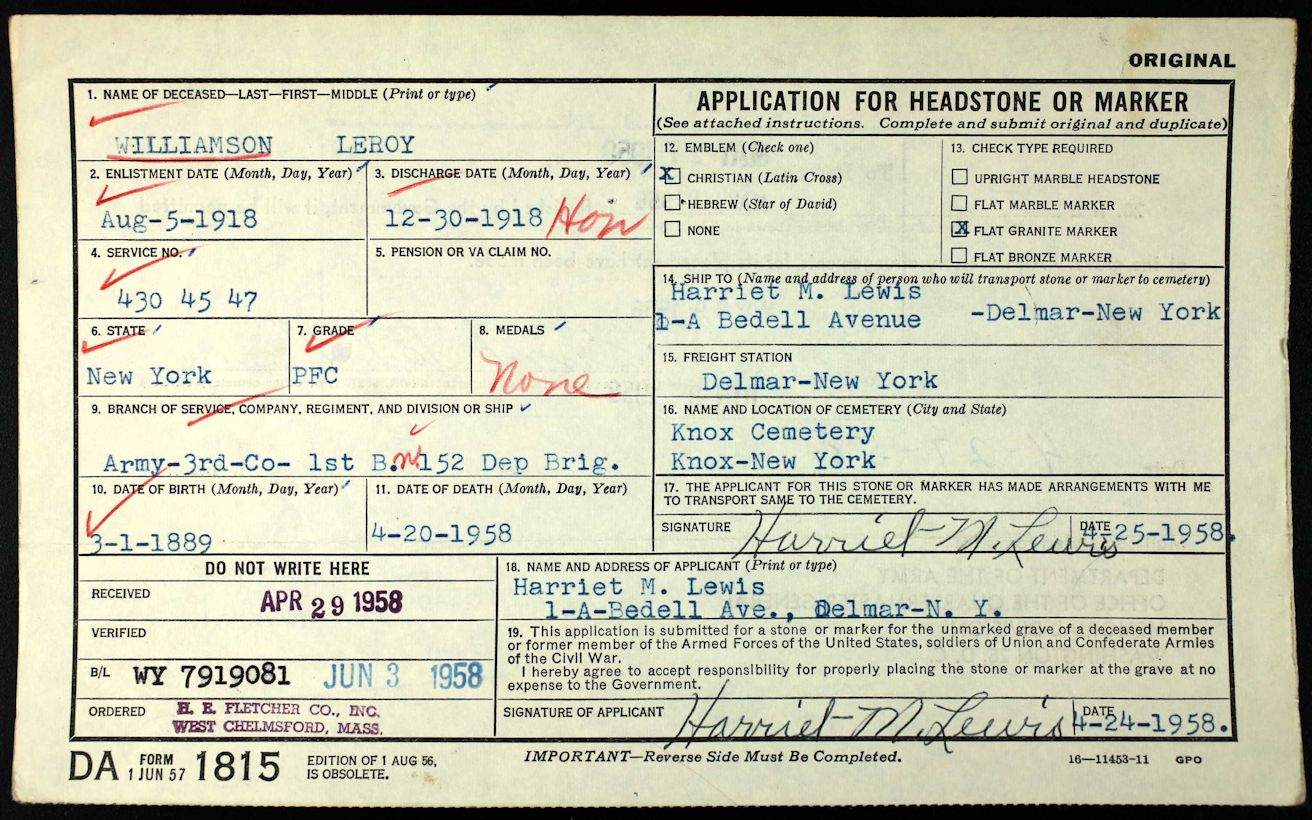 ORIGINAL
1. NAME OF DECEASED—LAST—FIRST—MIDDLE (Print or type)
WILLIAMSON LEROY
2. ENLISTMENT DATE (Month, Day, Year)
Aug-5-1918
3. DISCHARGE DATE (Month, Day, Year)
12-30-1918 Hon
4. SERVICE NO.
430 45 47
5. PENSION OR VA CLAIM NO.
6. STATE
New York
7. GRADE
PFC
8. MEDALS
None
9. BRANCH OF SERVICE, COMPANY, REGIMENT, AND DIVISION OR SHIP
Army-3rd-Co- 1st B.n 152 Dep Brig.
10. DATE OF BIRTH (Month, Day, Year)
3-1-1889
11. DATE OF DEATH (Month, Day, Year)
4-20-1958
APPLICATION FOR HEADSTONE OR MARKER
(See attached instructions. Complete and submit original and duplicate)
12. EMBLEM (Check one)
X CHRISTIAN (Latin Cross)
HEBREW (Star of David)
NONE
13. CHECK TYPE REQUIRED
UPRIGHT MARBLE HEADSTONE
FLAT MARBLE MARKER
X FLAT GRANITE MARKER
FLAT BRONZE MARKER
14. SHIP TO (Name and address of person who will transport stone or marker to cemetery)
Harriet M. Lewis
1-A Bedell Avenue -Delmar-New York
15. FREIGHT STATION
Delmar-New York
16. NAME AND LOCATION OF CEMETERY (City and State)
Knox Cemetery
Knox-New York
17. THE APPLICANT FOR THIS STONE OR MARKER HAS MADE ARRANGEMENTS WITH ME
TO TRANSPORT SAME TO THE CEMETERY.
SIGNATURE Harriet M. Lewis DATE 4-25-1958.
DO NOT WRITE HERE
RECEIVED APR 29 1958
VERIFIED
B/L WY 7919081 JUN 3 1958
ORDERED H. E. FLETCHER CO., INC.
WEST CHELMSFORD, MASS.
18. NAME AND ADDRESS OF APPLICANT (Print or type)
Harriet M. Lewis
1-A-Bedell Ave., Delmar-N. Y.
19. This application is submitted for a stone or marker for the unmarked grave of a deceased member
or former member of the Armed Forces of the United States, soldiers of Union and Confederate Armies
of the Civil War.
I hereby agree to accept responsibility for properly placing the stone or marker at the grave at no
expense to the Government.
SIGNATURE OF APPLICANT Harriet M. Lewis DATE 4-24-1958.
DA FORM 1 JUN 57 1815
EDITION OF 1 AUG 56,
IS OBSOLETE.
IMPORTANT—Reverse Side Must Be Completed.
16—11453-11 GPO